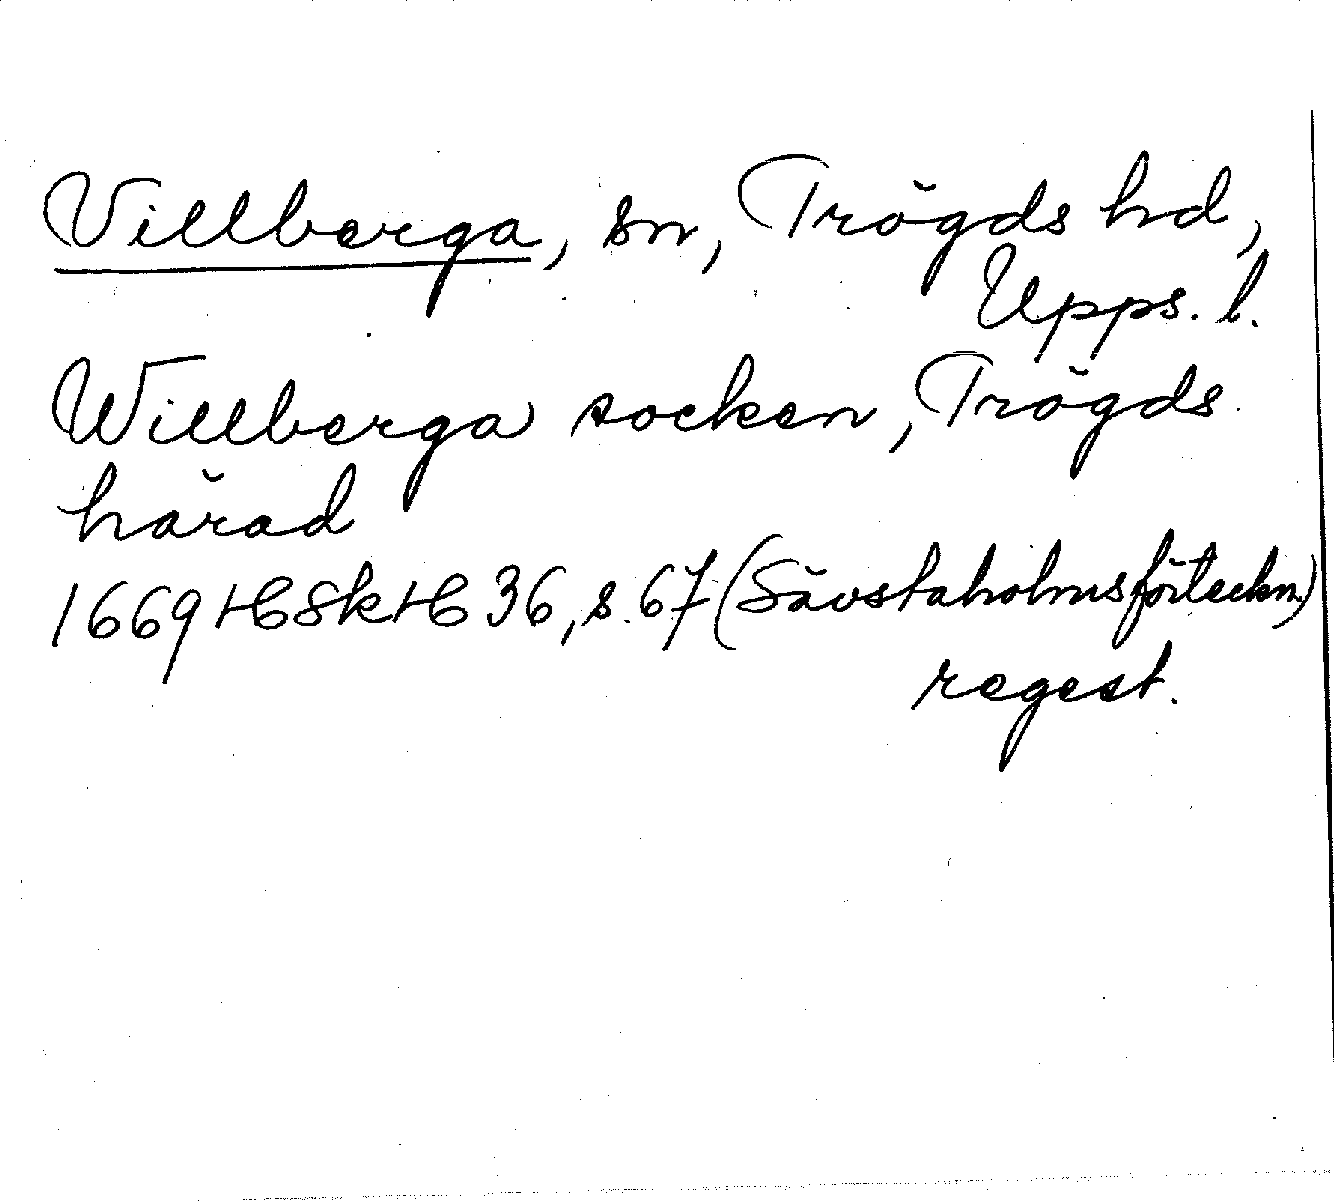 Villberga, sn, Trögds hd,
Upps. l.
Willberga socken, Trögds
härad
1669 HSkH 36, s. 67 (Sävstaholmsförteckn.)
regest.